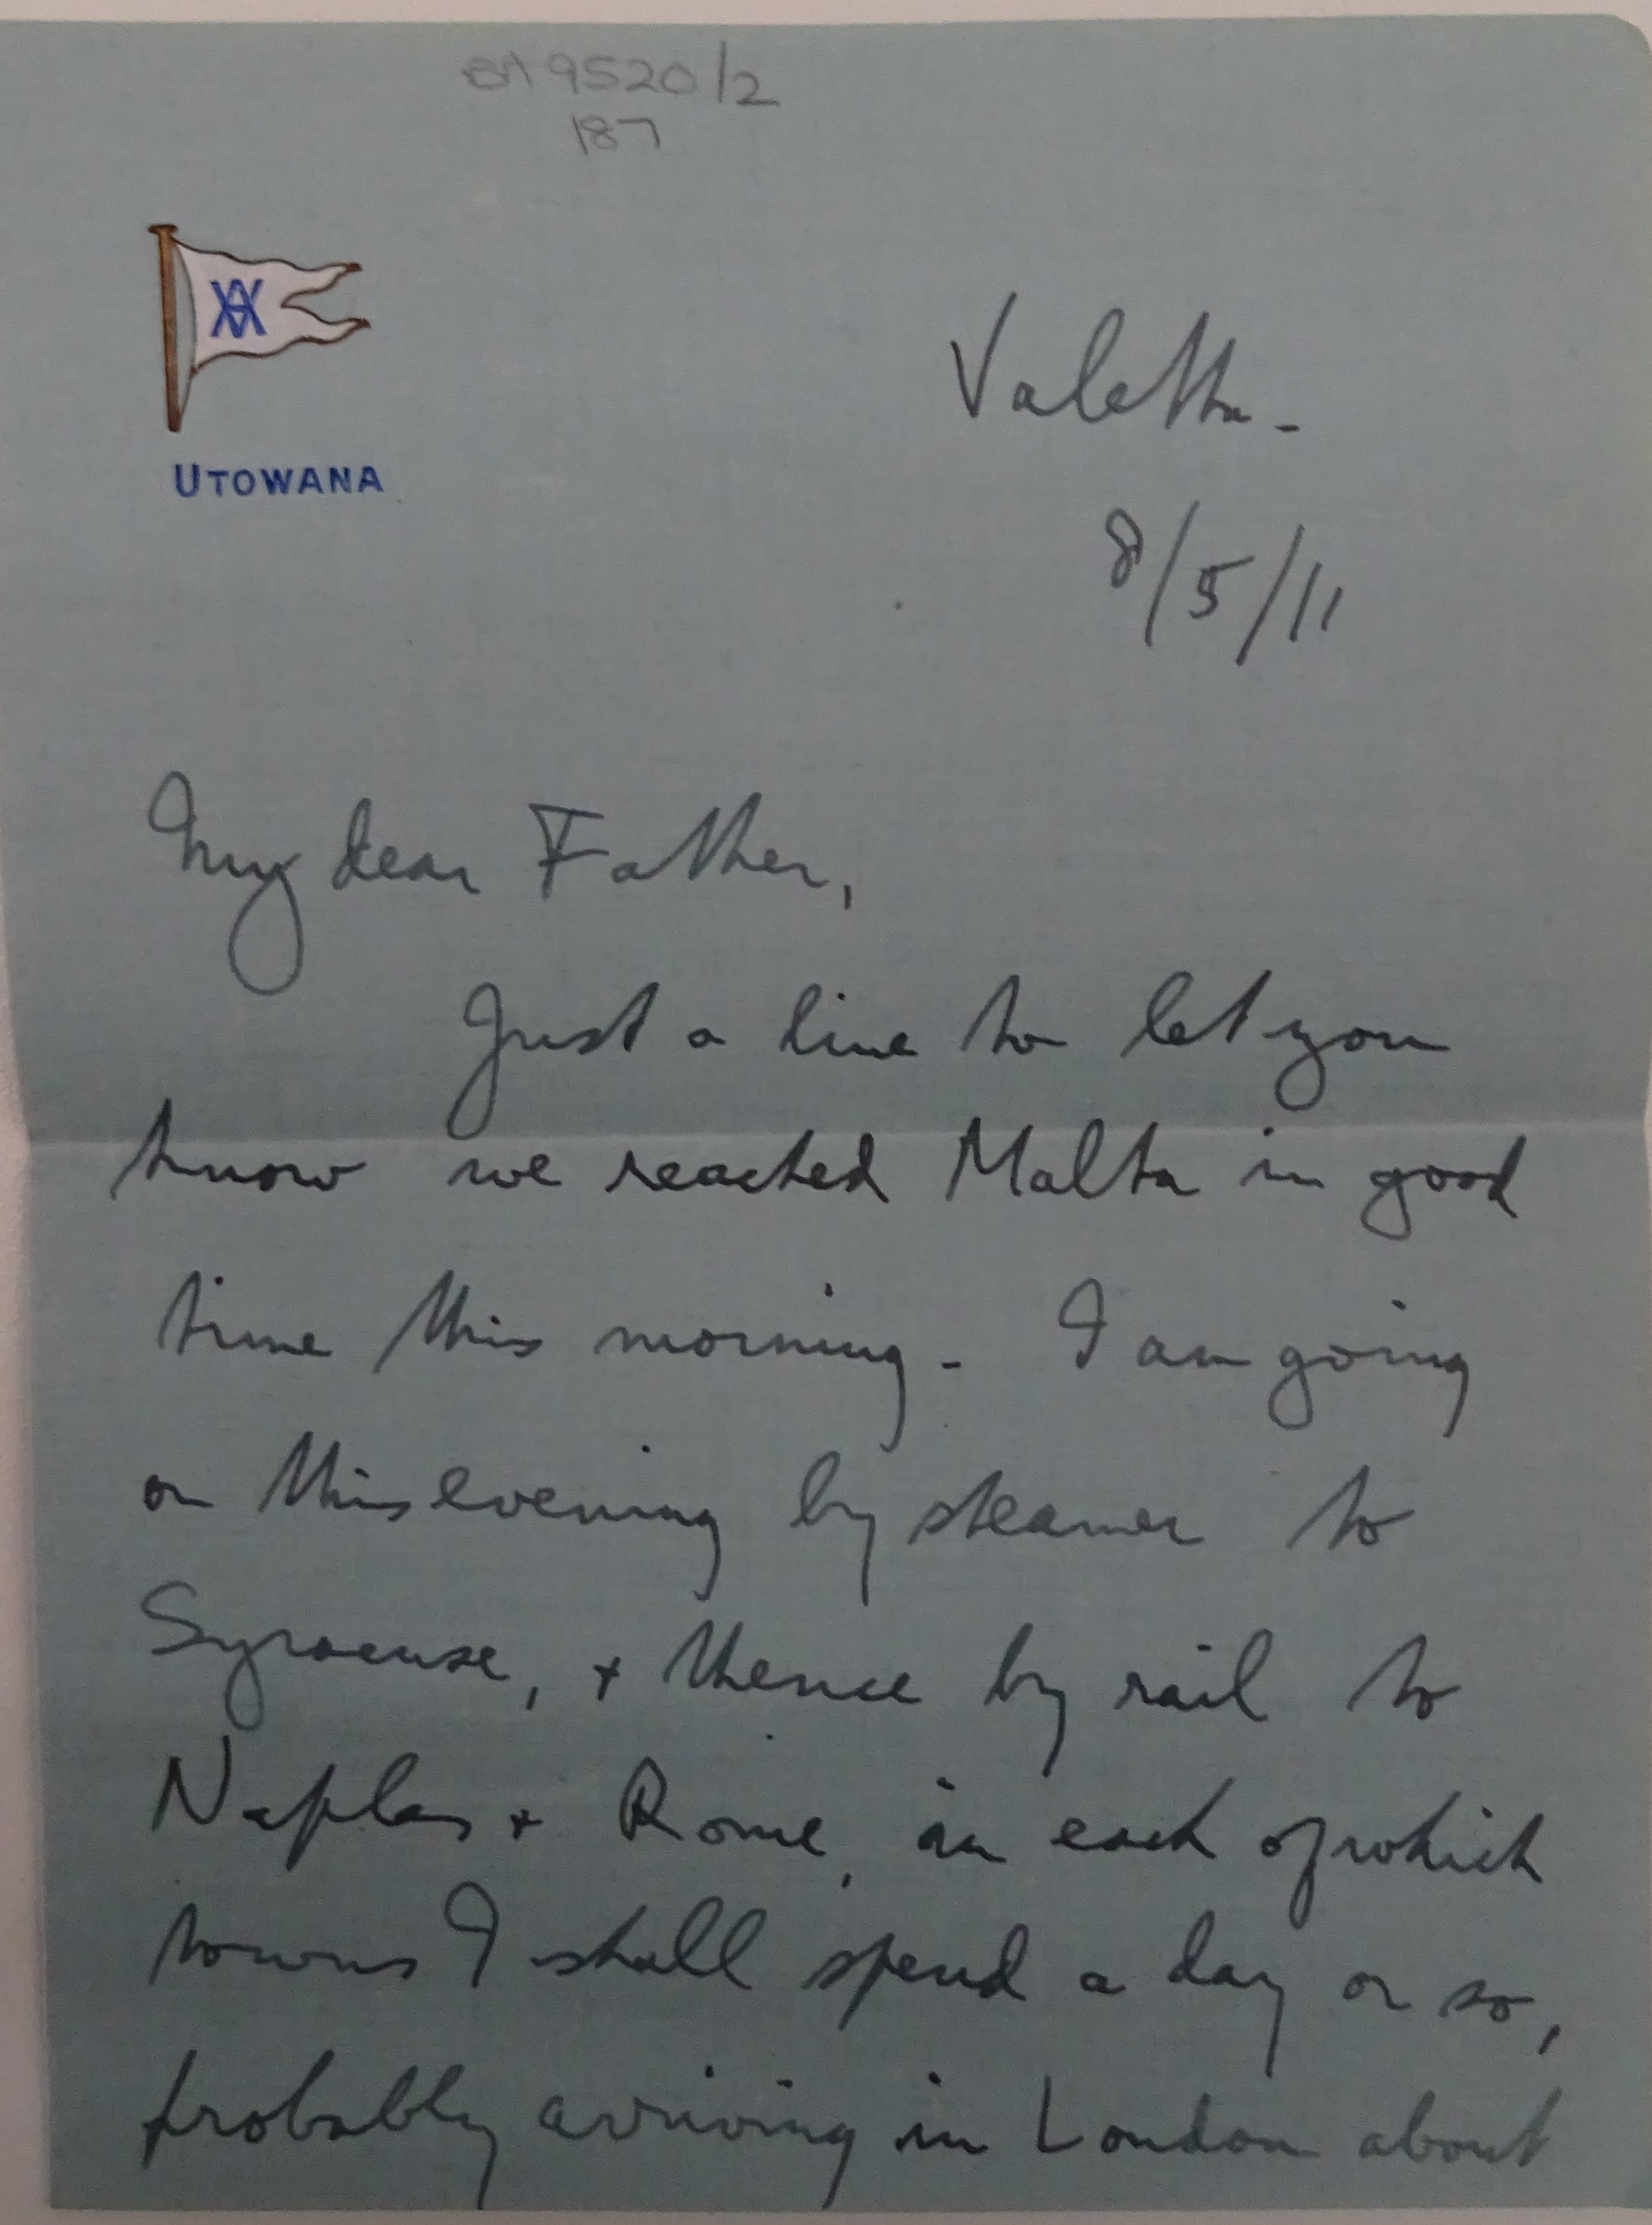 BA 9520/2
187
UTOWANA
Valetta -
8/5/11
My dear Father,
Just a line to let you
know we reached Malta in good
time this morning - I am going
on this evening by steamer to
Syracuse, + thence by rail to
Naples + Rome, in each of which
towns I shall spend a day or so,
probably arriving in London about